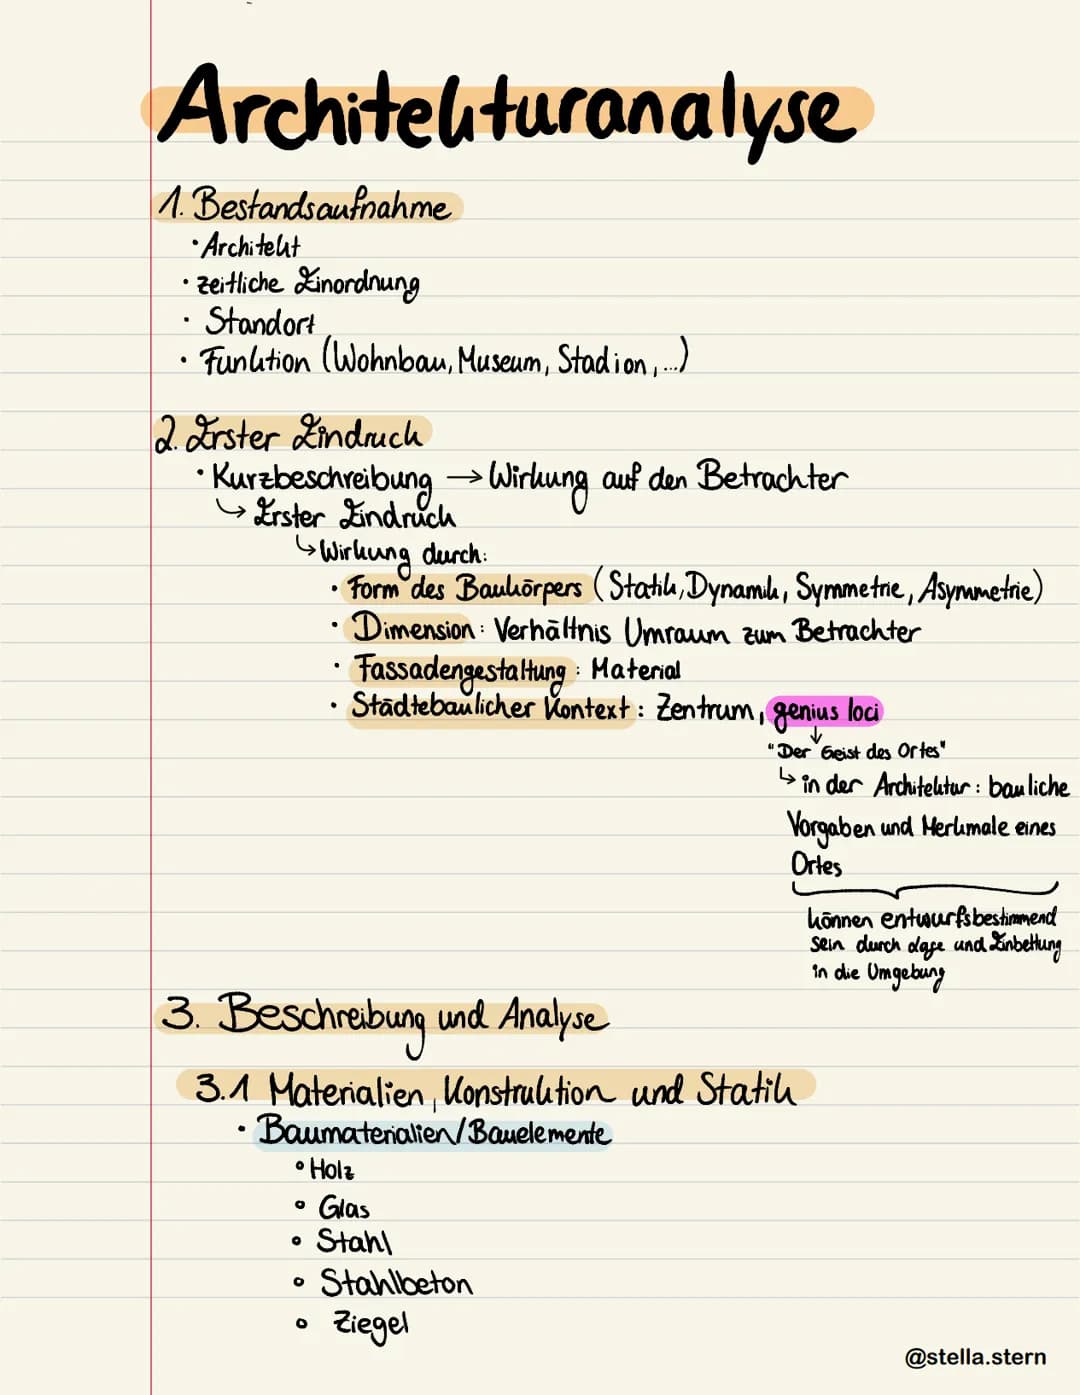 Architekturanalyse
1. Bestandsaufnahme
• Architekt
• zeitliche Einordnung
• Standort
• Funktion (Wohnbau, Museum, Stadion, ...)
2. Erster Eindruck
• Kurzbeschreibung → Wirkung auf den Betrachter
↳ Erster Eindruck
↳ Wirkung durch:
• Form des Baukörpers (Statik, Dynamik, Symmetrie, Asymmetrie)
• Dimension: Verhältnis Umraum zum Betrachter
• Fassadengestaltung: Material
• Städtebaulicher Kontext: Zentrum, genius loci
↓
"Der Geist des Ortes"
↳ in der Architektur: bauliche
Vorgaben und Merkmale eines
Ortes
können entwurfsbestimmend
sein durch Lage und Einbettung
in die Umgebung
3. Beschreibung und Analyse
3.1 Materialien, Konstruktion und Statik
• Baumaterialien/Bauelemente
◦ Holz
◦ Glas
◦ Stahl
◦ Stahlbeton
◦ Ziegel
@stella.stern